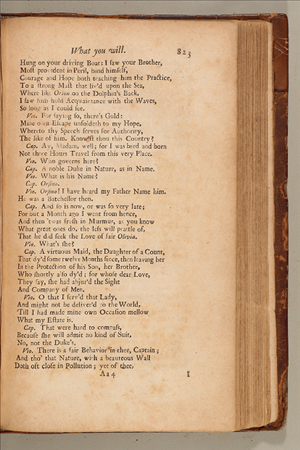 What you will. 823
Hung on your driving Boat: I saw your Brother,
Most provident in Peril, bind himself,
Courage and Hope both teaching him the Practice,
To a strong Mast that liv'd upon the Sea,
Where like Orion on the Dolphin's Back,
I saw him hold Acquaintance with the Waves,
So long as I could see.
Vio. For saying so, there's Gold:
Mine own Escape unfoldeth to my Hope,
Whereto thy Speech serves for Authority,
The like of him. Know'st thou this Country?
Cap. Ay, Madam, well; for I was bred and born
Not three Hours Travel from this very Place.
Vio. Who governs here?
Cap. A noble Duke in Nature, as in Name.
Vio. What is his Name?
Cap. Orsino.
Vio. Orsino! I have heard my Father Name him.
He was a Batchellor then.
Cap. And so is now, or was so very late;
For but a Month ago I went from hence,
And then 'twas fresh in Murmur, as you know
What great ones do, the less will prattle of,
That he did seek the Love of fair Olivia.
Vio. What's she?
Cap. A virtuous Maid, the Daughter of a Count,
That dy'd some twelve Months since, then leaving her
In the Protection of his Son, her Brother,
Who shortly also dy'd; for whose dear Love,
They say, she had abjur'd the Sight
And Company of Men.
Vio. O that I serv'd that Lady,
And might not be deliver'd to the World,
'Till I had made mine own Occasion mellow
What my Estate is.
Cap. That were hard to compass,
Because she will admit no kind of Suit,
No, nor the Duke's.
Vio. There is a fair Behavior in thee, Captain;
And tho' that Nature, with a beauteous Wall
Doth oft close in Pollution; yet of thee,
Aa4 I